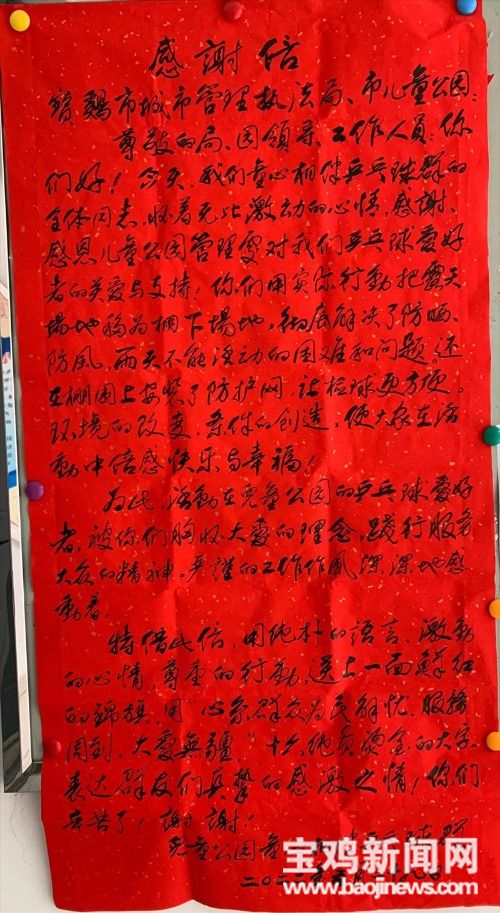 感謝信
寶鷄市城市管理执法局、市儿童公园:
尊敬的局、园领导、工作人员:你
们好!今天、我们童心相伴乒乓球群的
全体同志,怀着无比激动的心情,感謝、
感恩儿童公园管理更对我们乒乓球爱好
者的关爱与支持!你们用实际行動把露天
場地移为棚下場地,彻底解决了防晒、
防風,雨天不能活动的困难和问题,还
在棚围上安装了防护网,让捡球更方便。
环境的改变,条件的创造,使大家在活
動中倍感快乐与幸福!
为此,活動在児童公园的乒乓球爱好
者,被你们胸怀大爱的理念,踐行服务
大众的精神,严謹的工作作風深深地感
動着。
特借此信,用纯朴的语言、激動
的心情,尊重的行動,送上一面鮮红
的錦旗,用“心系群众为民解忧、服務
周到、大爱無疆”十六纯黄燙金的大字,
表达群友们真摯的感激之情!你们
辛苦了!謝謝!
児童公园童心相伴乒乓球群
二〇二
宝鸡新闻网
www.baojinews.com